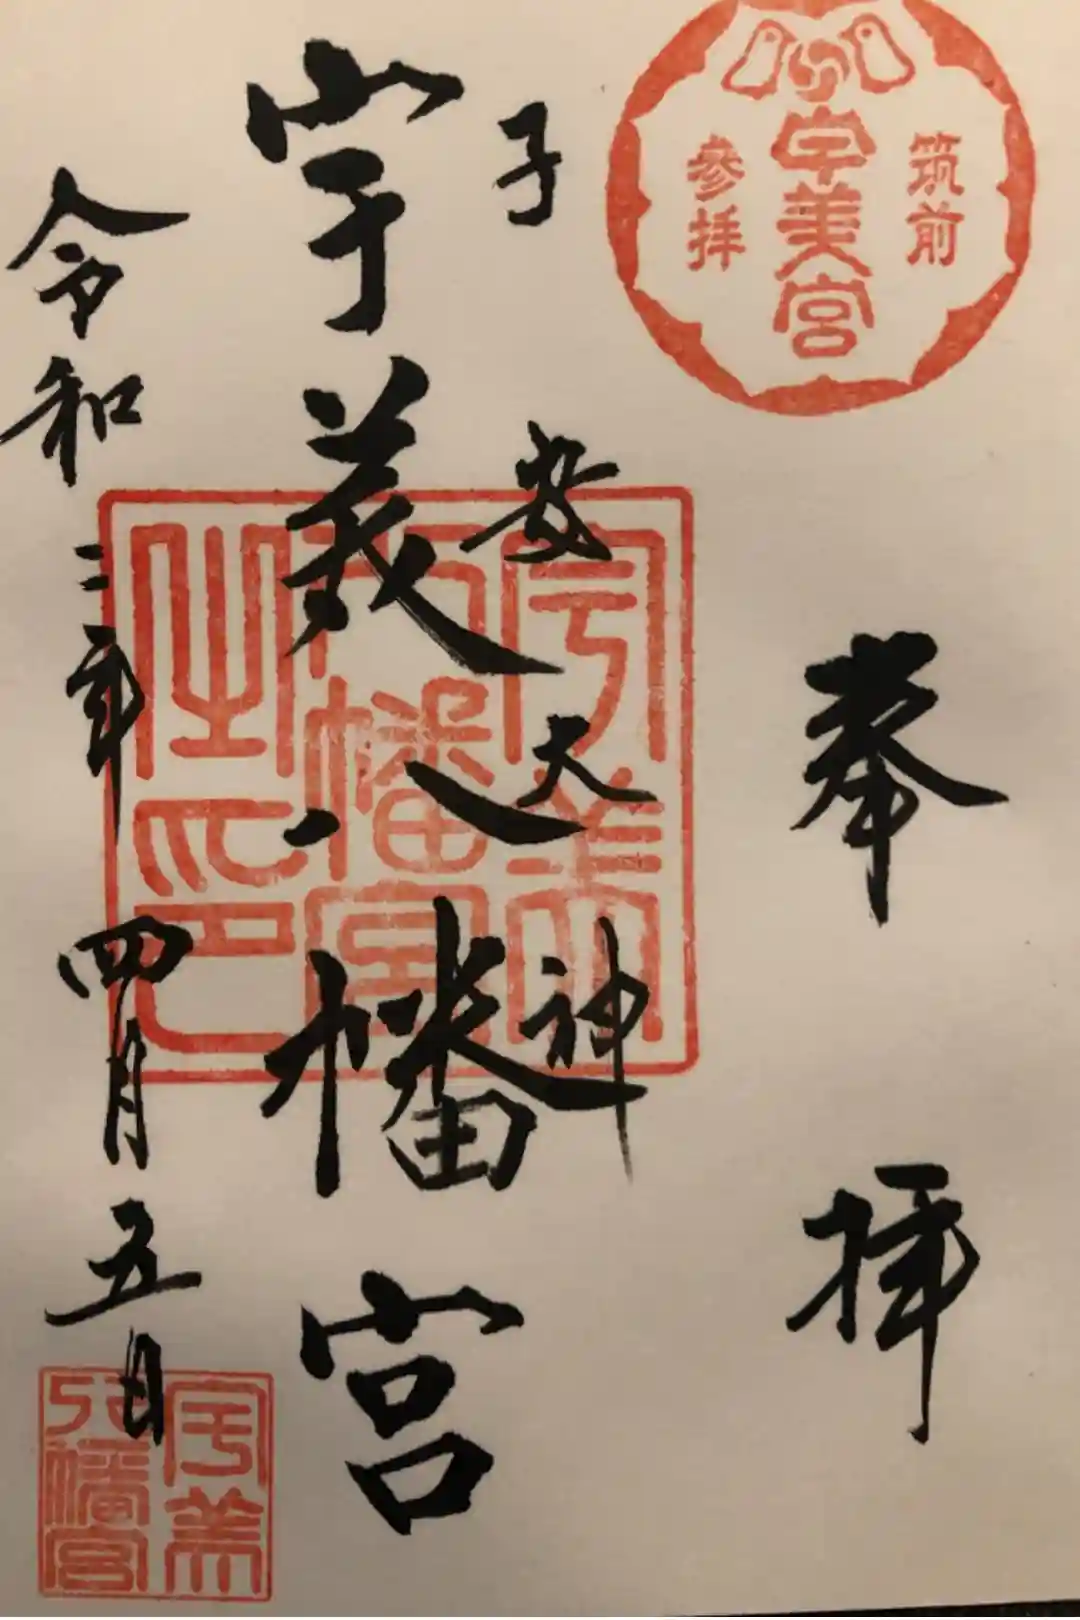 筑前
宇美宮
參拝
奉拝
子安大神
宇美八幡宮
令和二年四月五日
宇美
八幡宮
之印
宇美
八幡宮